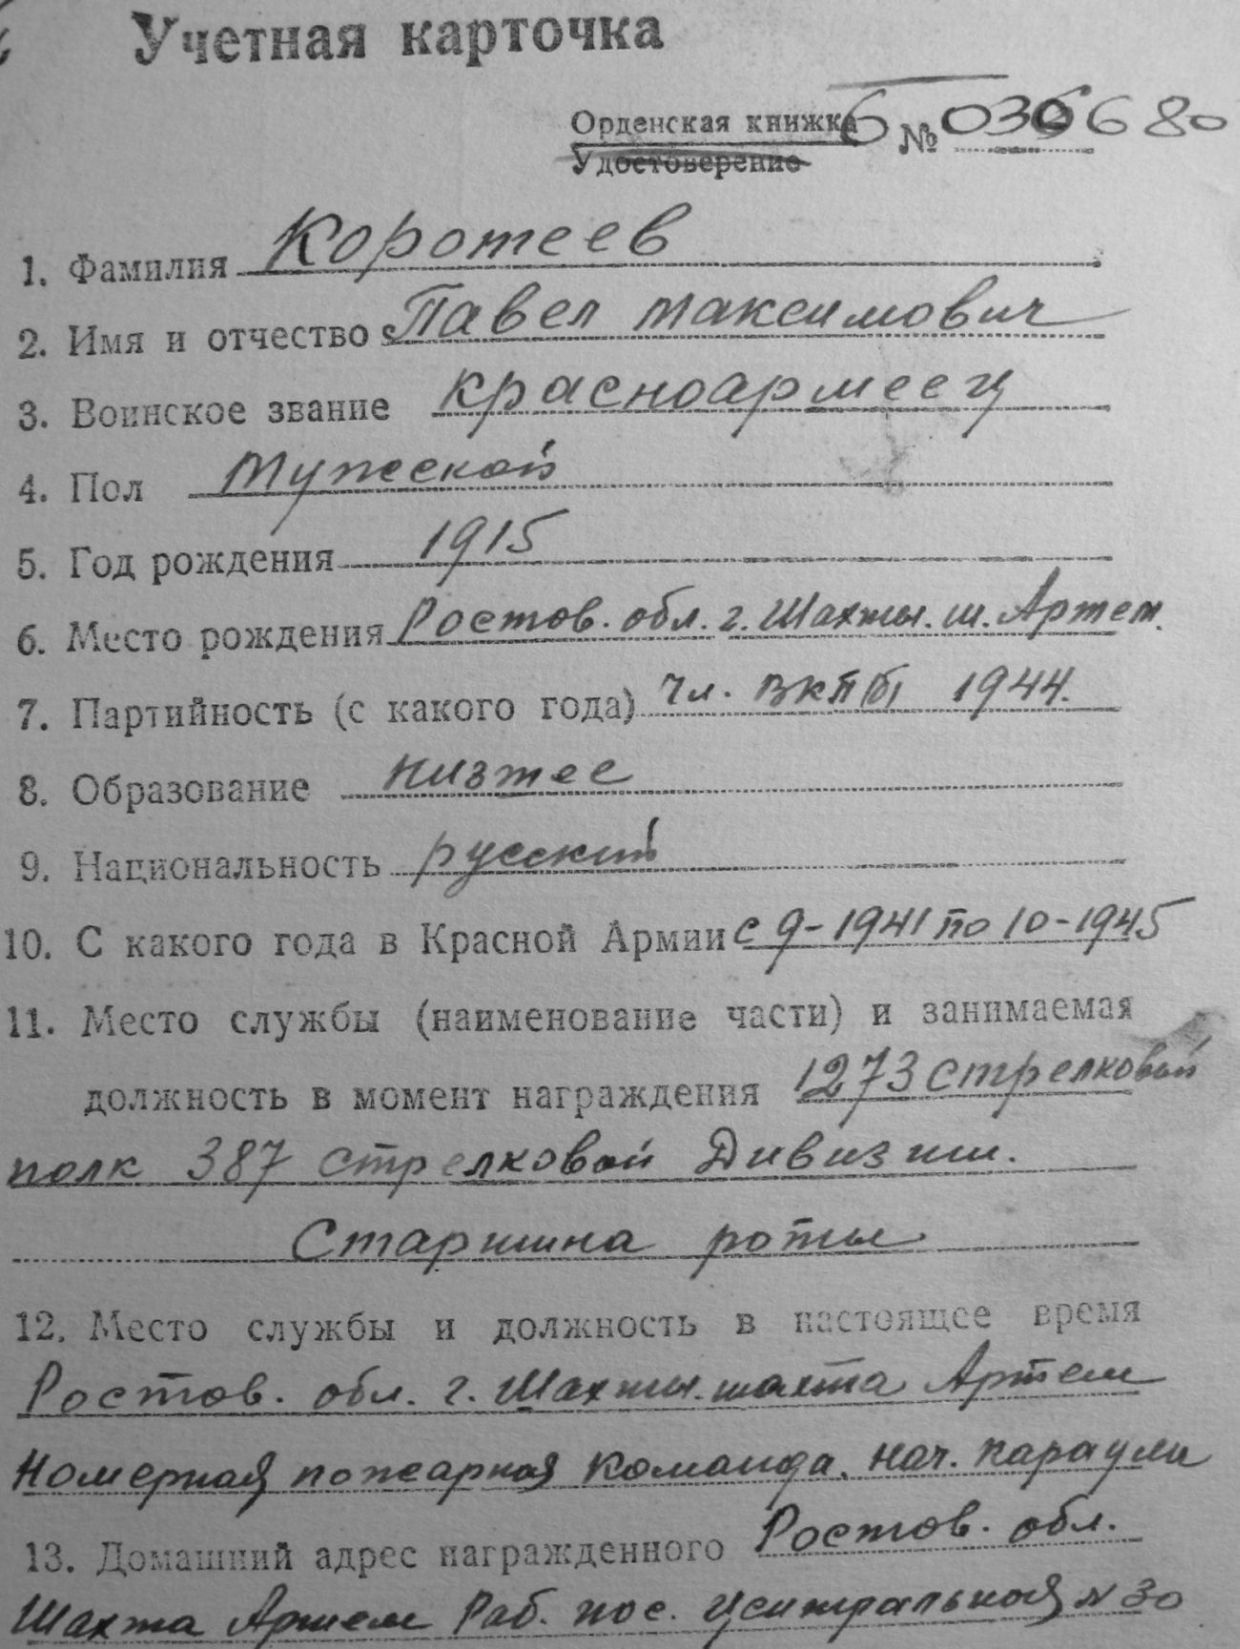 Учетная карточка
Орденская книжка Б № 036680
Удостоверение
1. Фамилия Коротеев
2. Имя и отчество Павел Максимович
3. Воинское звание красноармеец
4. Пол Мужской
5. Год рождения 1915
6. Место рождения Ростов. обл. г. Шахты. ш. Артем.
7. Партийность (с какого года) Чл. ВКП(б) 1944.
8. Образование низшее
9. Национальность русский
10. С какого года в Красной Армии с 9-1941 по 10-1945
11. Место службы (наименование части) и занимаемая
должность в момент награждения 1273 стрелковый
полк 387 стрелковой Дивизии.
Старшина роты
12. Место службы и должность в настоящее время
Ростов. обл. г. Шахты. шахта Артем
пожарная команда. нач. караула
13. Домашний адрес награжденного Ростов. обл.
Шахта Артем Раб. пос. Центральная № 30